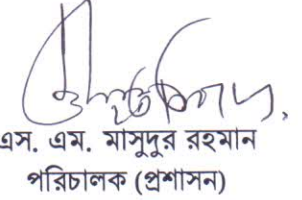 এস. এম. মাসুদুর রহমান
পরিচালক (প্রশাসন)